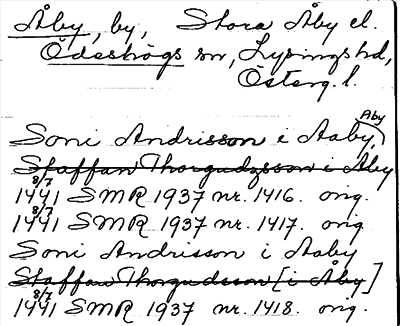 Åby, by, Stora Åby el.
Ödeshögs sn, Lysings hd,
Österg. l.
Aby
Soni Andrisson i Aaby,
Staffan Thorgudzsson i Aby
8/7
1441 SMR 1937 nr. 1416. orig.
8/7
1441 SMR 1937 nr. 1417. orig.
Soni Andrisson i Aaby
Staffan Thorgudsson [i Åby]
8/7
1441 SMR 1937 nr. 1418. orig.